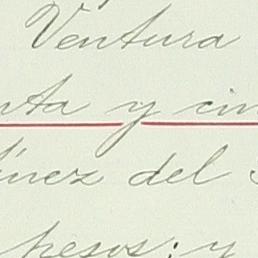 Ventura
nta y cin
ínez del
pesos; y